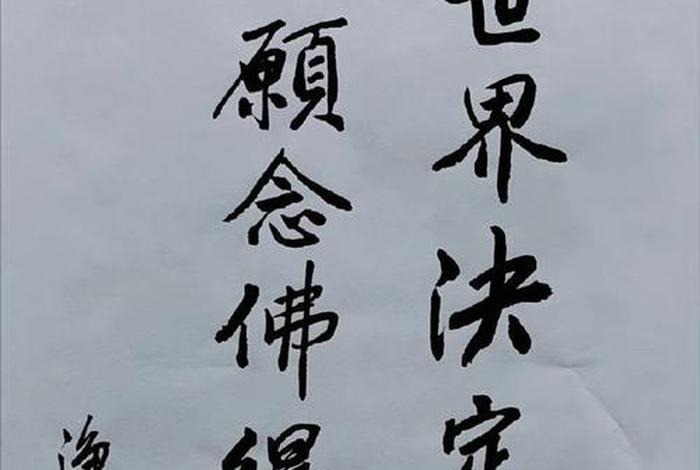 世界決定
願念佛得
淨